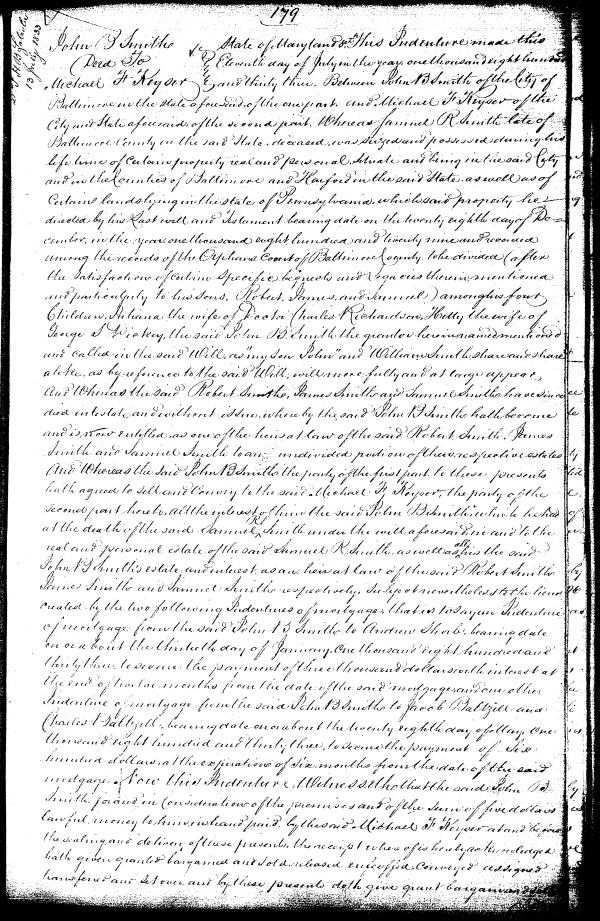 179
John B Smith
Deed To
Michael F Keyser
13 July 1833
State of Maryland Sc This Indenture made this
Eleventh day of July in the year one thousand eight hundred
and thirty three. Between John B Smith of the City of
Baltimore in the state aforesaid of the one part. and Michael F Keyser of the
City and State aforesaid of the second part. Whereas Samuel R Smith late of
Baltimore County in the said State deceased, was seized and possessed during his
life time of Certain property real and personal Situate and being in the said City
and in the Counties of Baltimore and Harford in the said State as well as of
Certain lands lying in the state of Pennsylvania, which said property he
directed by his Last will and Testament bearing date on the twenty eighth day of De=
cember, in the year one thousand eight hundred and twenty nine and recorded
among the records of the Orphans Court of Baltimore County to be divided (after
the satisfaction of Certain specific bequests and Legacies therein mentioned
and particularly to his sons, Robert, James, and Samuel) among his four
Children, Juliana the wife of Doctor Charles Richardson, Hetty the wife of
George Hickey, the said John B Smith the grantor herein named mentioned
and called in the said Will as "my son John" and William Smith share and share
alike, as by reference to the said Will, will more fully and at large appear,
And Whereas the said Robert Smith, James Smith and Samuel Smith have since
died intestate and without issue, where by the said John B Smith hath become
and is, now entitled, as one of the heirs at law of the said Robert Smith, James
Smith and Samuel Smith to an undivided portion of their respective estates
And Whereas the said John B Smith the party of the first part to these presents
hath agreed to sell and Convey to the said Michael F. Keyser, the party of the
second part hereto. All the interest of him the said John B Smith which he had
at the death of the said Samuel R Smith under the will aforesaid in and to the
real and personal estate of the said Samuel R. Smith, as well as all his the said
John B Smith's estate and interest as an heir at law of the said Robert Smith
James Smith and Samuel Smith respectively, Subject nevertheless to the liens
created by the two following Indentures of mortgage, that is to say an Indenture
of mortgage from the said John B Smith, to Andrew Shorb, bearing date
on or about the thirtieth day of January, One thousand eight hundred and
thirty three, to secure the payment of three thousand dollars with interest at
the end of twelve months from the date of the said mortgage and one other
Indenture of mortgage from the said John B Smith to Jacob Baltzell and
Charles Baltzell, bearing date on or about the twenty eighth day of May, One
thousand eight hundred and thirty three, to secure the payment of Six
hundred dollars, at the expiration of Six months from the date of the said
mortgage. Now this Indenture Witnesseth that the said John B
Smith for and in Consideration of the premises and of the Sum of five dollars
lawful money to him in hand paid, by the said Michael F Keyser at and before
the sealing and delivery of these presents, the receipt whereof is hereby acknowledged
hath given granted bargained and sold released enfeoffed Conveyed assigned
transferred and set over and by these presents doth give grant bargain and